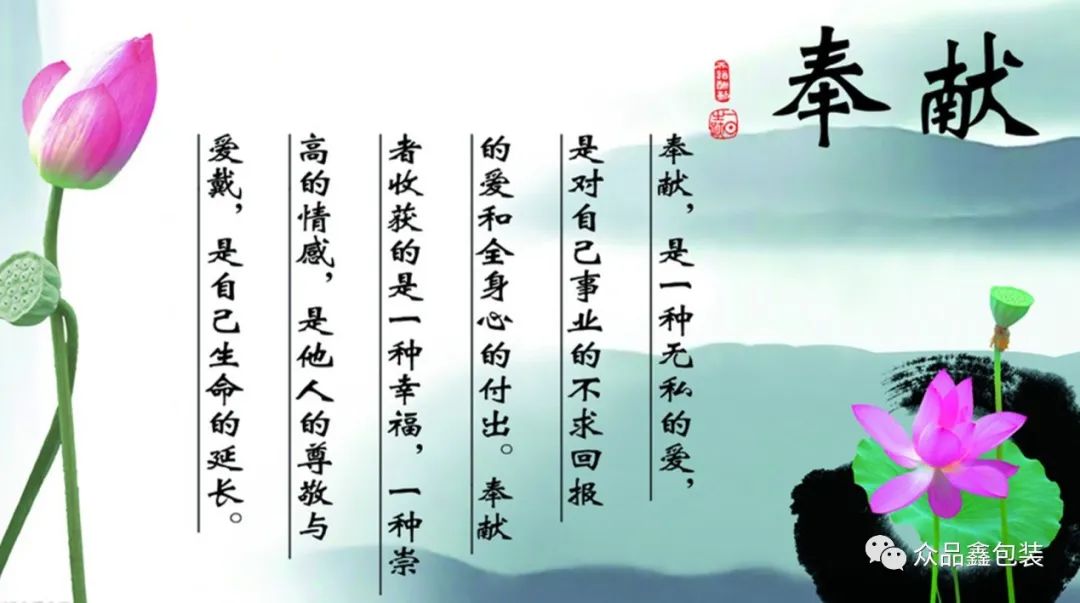 奉献
奉献，是一种无私的爱，
是对自己事业的不求回报
的爱和全身心的付出。奉献
者收获的是一种幸福，一种崇
高的情感，是他人的尊敬与
爱戴，是自己生命的延长。
众品鑫包装